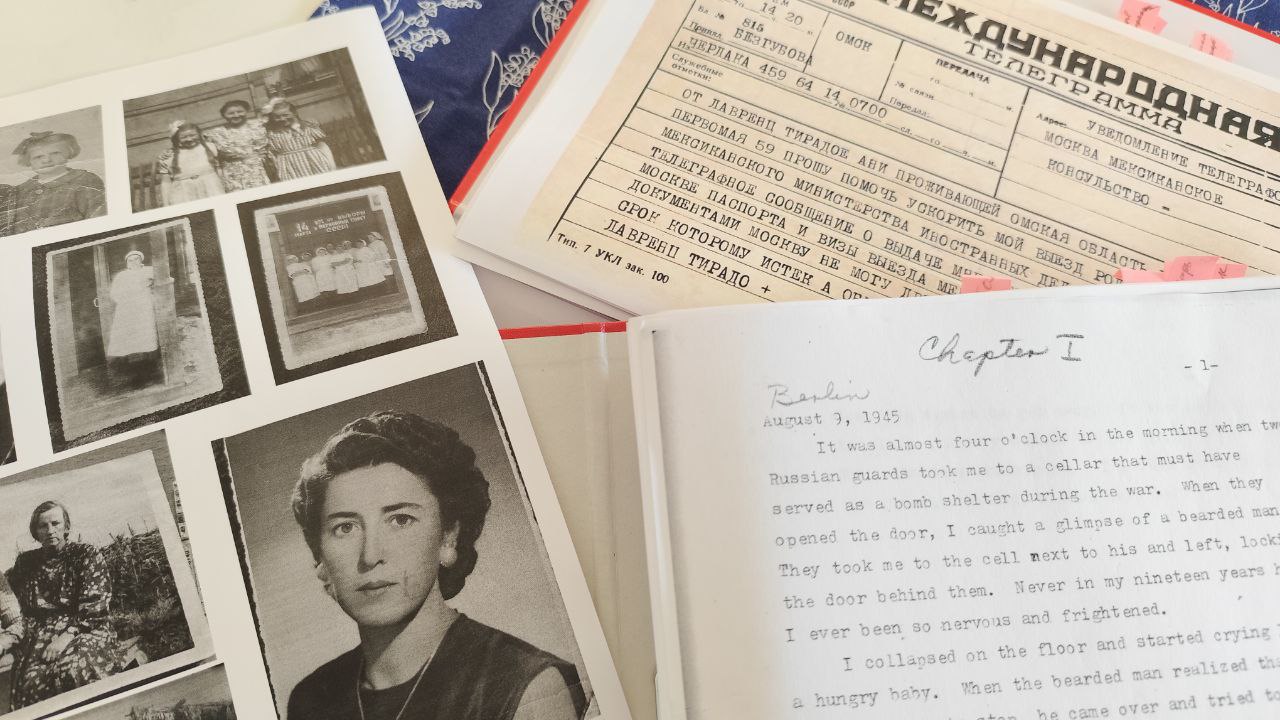 14 МАРТА
УРА! ВЫБОРЫ
В ВЕРХОВНЫЙ СОВЕТ
СССР!
МЕЖДУНАРОДНАЯ
ТЕЛЕГРАММА
СССР
14 20
Бл. № 815
Принял БЕЗГУБОВА
ОМСК
ПЕРЕДАЧА
го ч. м.
№ связи
Передал:
Из ЧЕРЛАКА 459 64 14 0700
сл. го ч. м.
Служебные
отметки:
Адрес: УВЕДОМЛЕНИЕ ТЕЛЕГРАФ
МОСКВА МЕКСИКАНСКОЕ
КОНСУЛЬСТВО -
ОТ ЛАВРЕНЦ ТИРАДОЕ АНИ ПРОЖИВАЮЩЕЙ ОМСКАЯ ОБЛАСТЬ
ПЕРВОМАЯ 59 ПРОШУ ПОМОЧЬ УСКОРИТЬ МОЙ ВЫЕЗД РОД
МЕКСИКАНСКОГО МИНИСТЕРСТВА ИНОСТРАННЫХ ДЕЛ
ТЕЛЕГРАФНОЕ СООБЩЕНИЕ О ВЫДАЧЕ МНЕ
МОСКВЕ ПАСПОРТА И ВИЗЫ ВЫЕЗДА МЕ
ДОКУМЕНТАМИ МОСКВУ НЕ МОГУ
СРОК КОТОРОМУ ИСТЕК А ОБ
ЛАВРЕНЦ ТИРАДО +
Тип. 7 УКЛ зак. 100
Chapter I
-1-
Berlin
August 9, 1945
It was almost four o'clock in the morning when two
Russian guards took me to a cellar that must have
served as a bomb shelter during the war. When they
opened the door, I caught a glimpse of a bearded man
They took me to the cell next to his and left, locki
the door behind them. Never in my nineteen years h
I ever been so nervous and frightened.
I collapsed on the floor and started crying
a hungry baby. When the bearded man realized tha
he came over and tried to